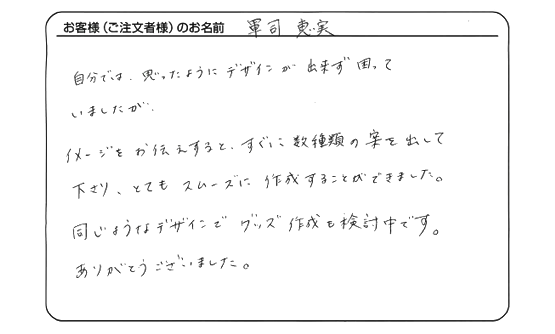 お客様（ご注文者様）のお名前 軍司 恵実
自分では、思ったようにデザインが出来ず困って
いましたが、
イメージをお伝えすると、すぐに数種類の案を出して
下さり、とてもスムーズに作成することができました。
同じようなデザインでグッズ作成も検討中です。
ありがとうございました。